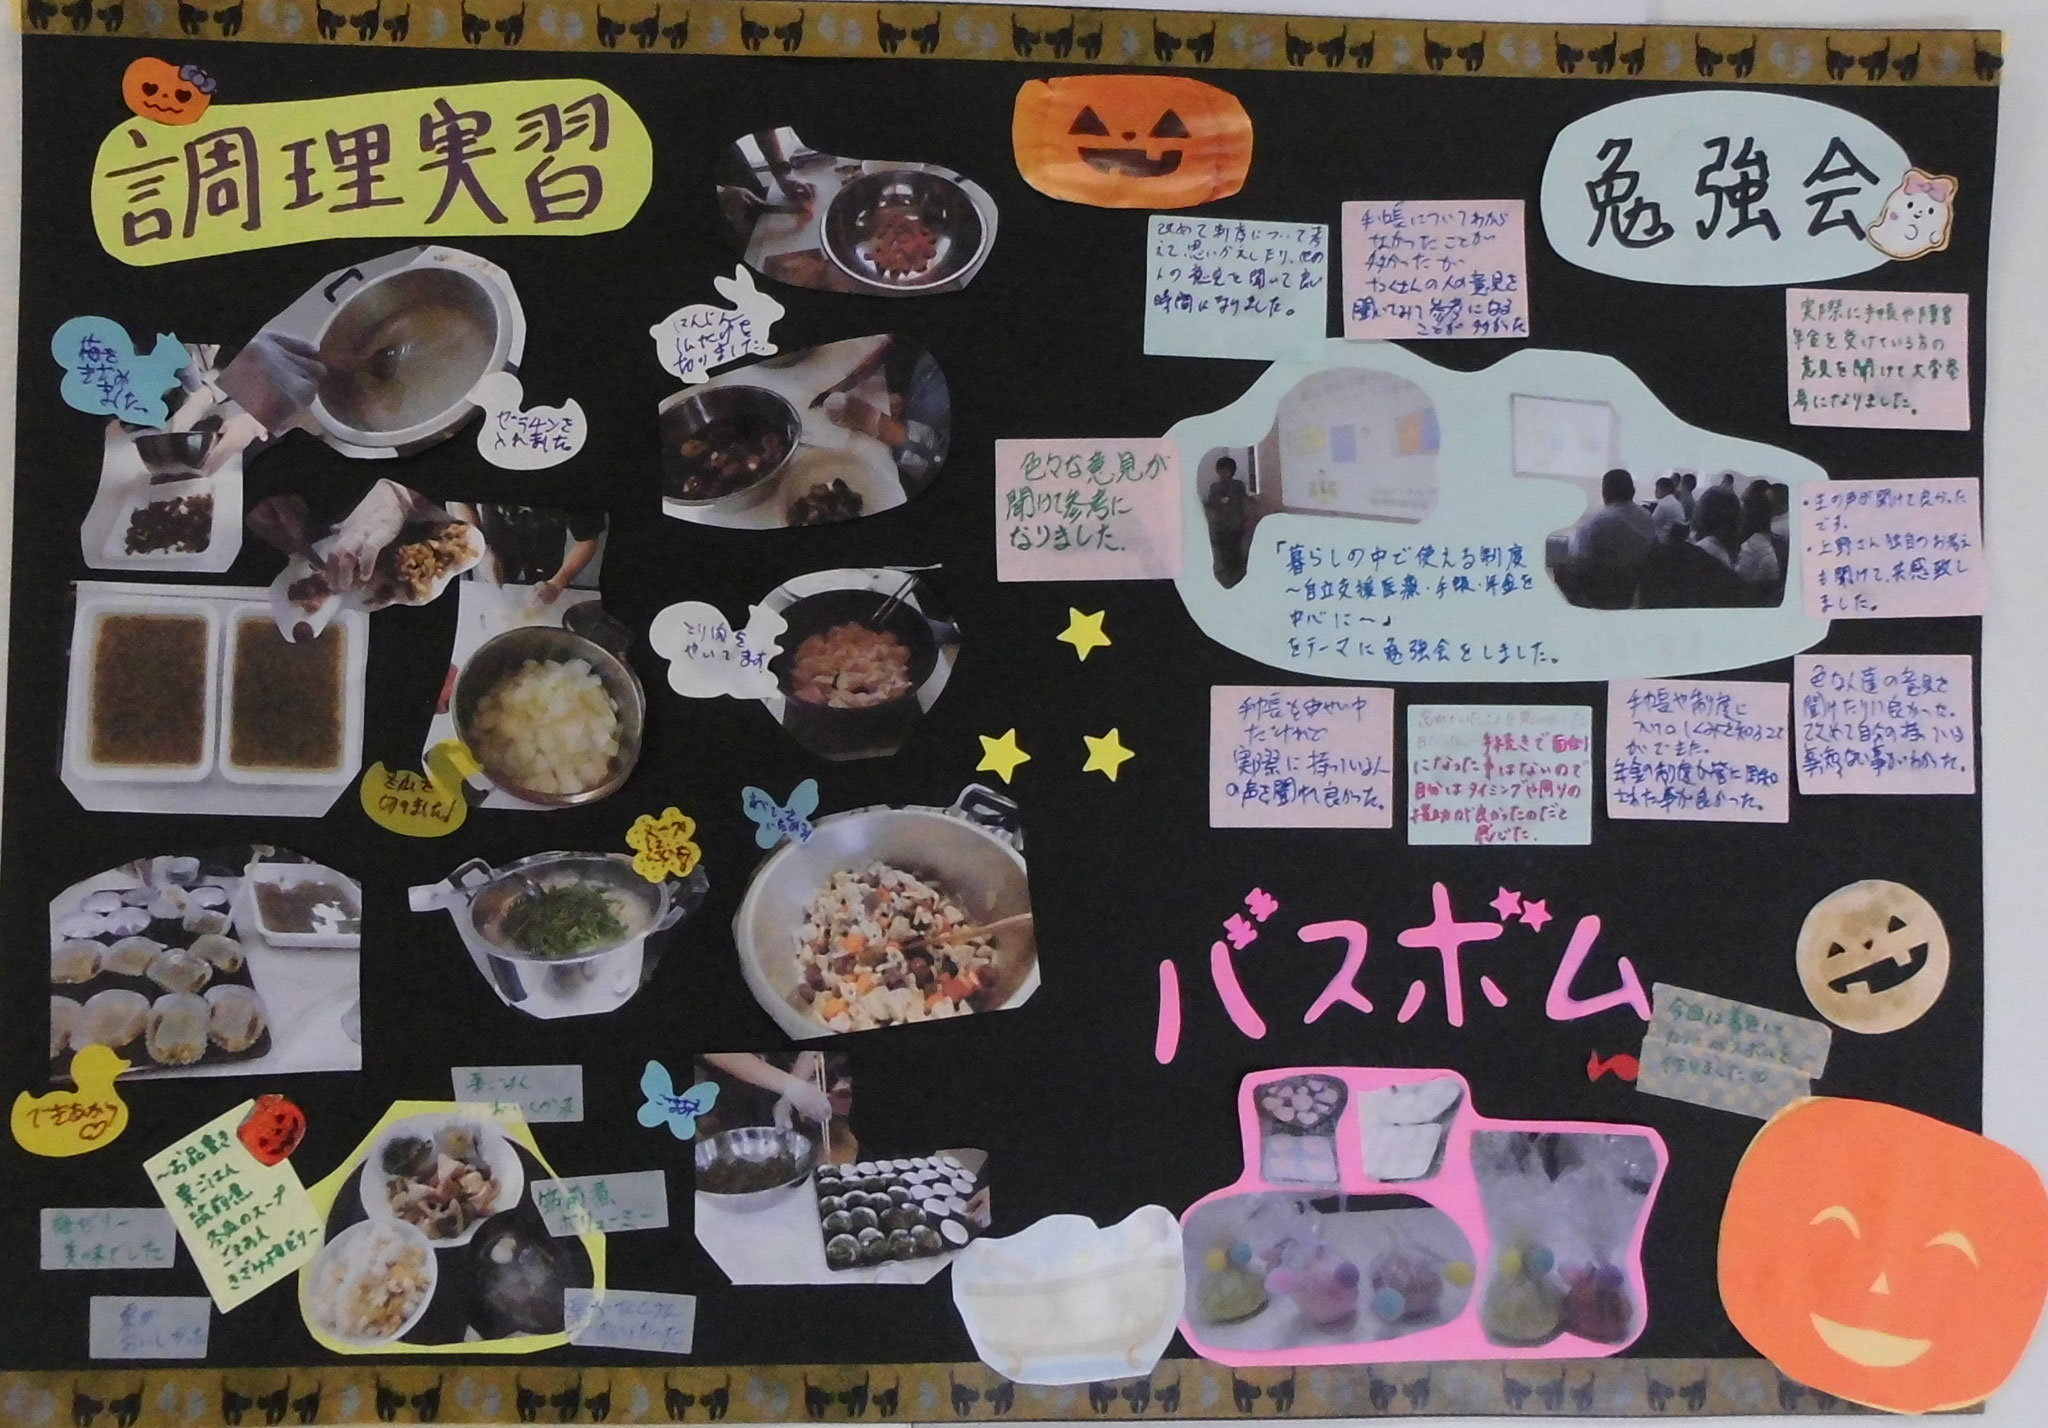 調理実習
梅を
きざみ
ました
ゼラチンを
入れました。
にんじん
しいたけを
切りました。
とり肉を
やいてます!
大根を
切りました!
スープ
あじつけ
いためる
できあがり
♡
ごまあえ
~お品書き
栗ごはん
筑前煮
冬瓜のスープ
ごまあえ
きざみ梅ゼリー
栗ごはん
おいしかった
筑前煮
ボリューミー
梅ゼリー
美味でした
栗が
おいしかった
おいしかった
勉強会
改めて制度について考
えて、思いかえしたり、他の
人の意見を聞いて良い
時間になりました。
手帳についてわから
なかったことが
多かったが
たくさんの人の意見を
聞いてみて参考になる
ことが多かった
実際に手帳や障害
年金を受けている方の
意見を聞けて大変参
考になりました。
色々な意見が
聞けて参考に
なりました。
「暮らしの中で使える制度
~自立支援医療・手帳・年金を
中心に~」
をテーマに勉強会をしました。
・生の声が聞けて良かった
です。
・上野さん独自のお考え
も聞けて、共感致し
ました。
手帳を申せい中
だけれど
実際に持っている人
の声を聞れ良かった。
手続きで面倒
になった事はないので
自分はタイミングや周りの
援助が良かったのだと
感じた。
手帳や制度に
しくみを知ること
ができた。
年金の制度が皆に周知
された事が良かった。
色な人達の意見を
聞けたりに良かった。
改めて自分の持っている
バスボム
今回は着色して
カラーバスボムを
作りました